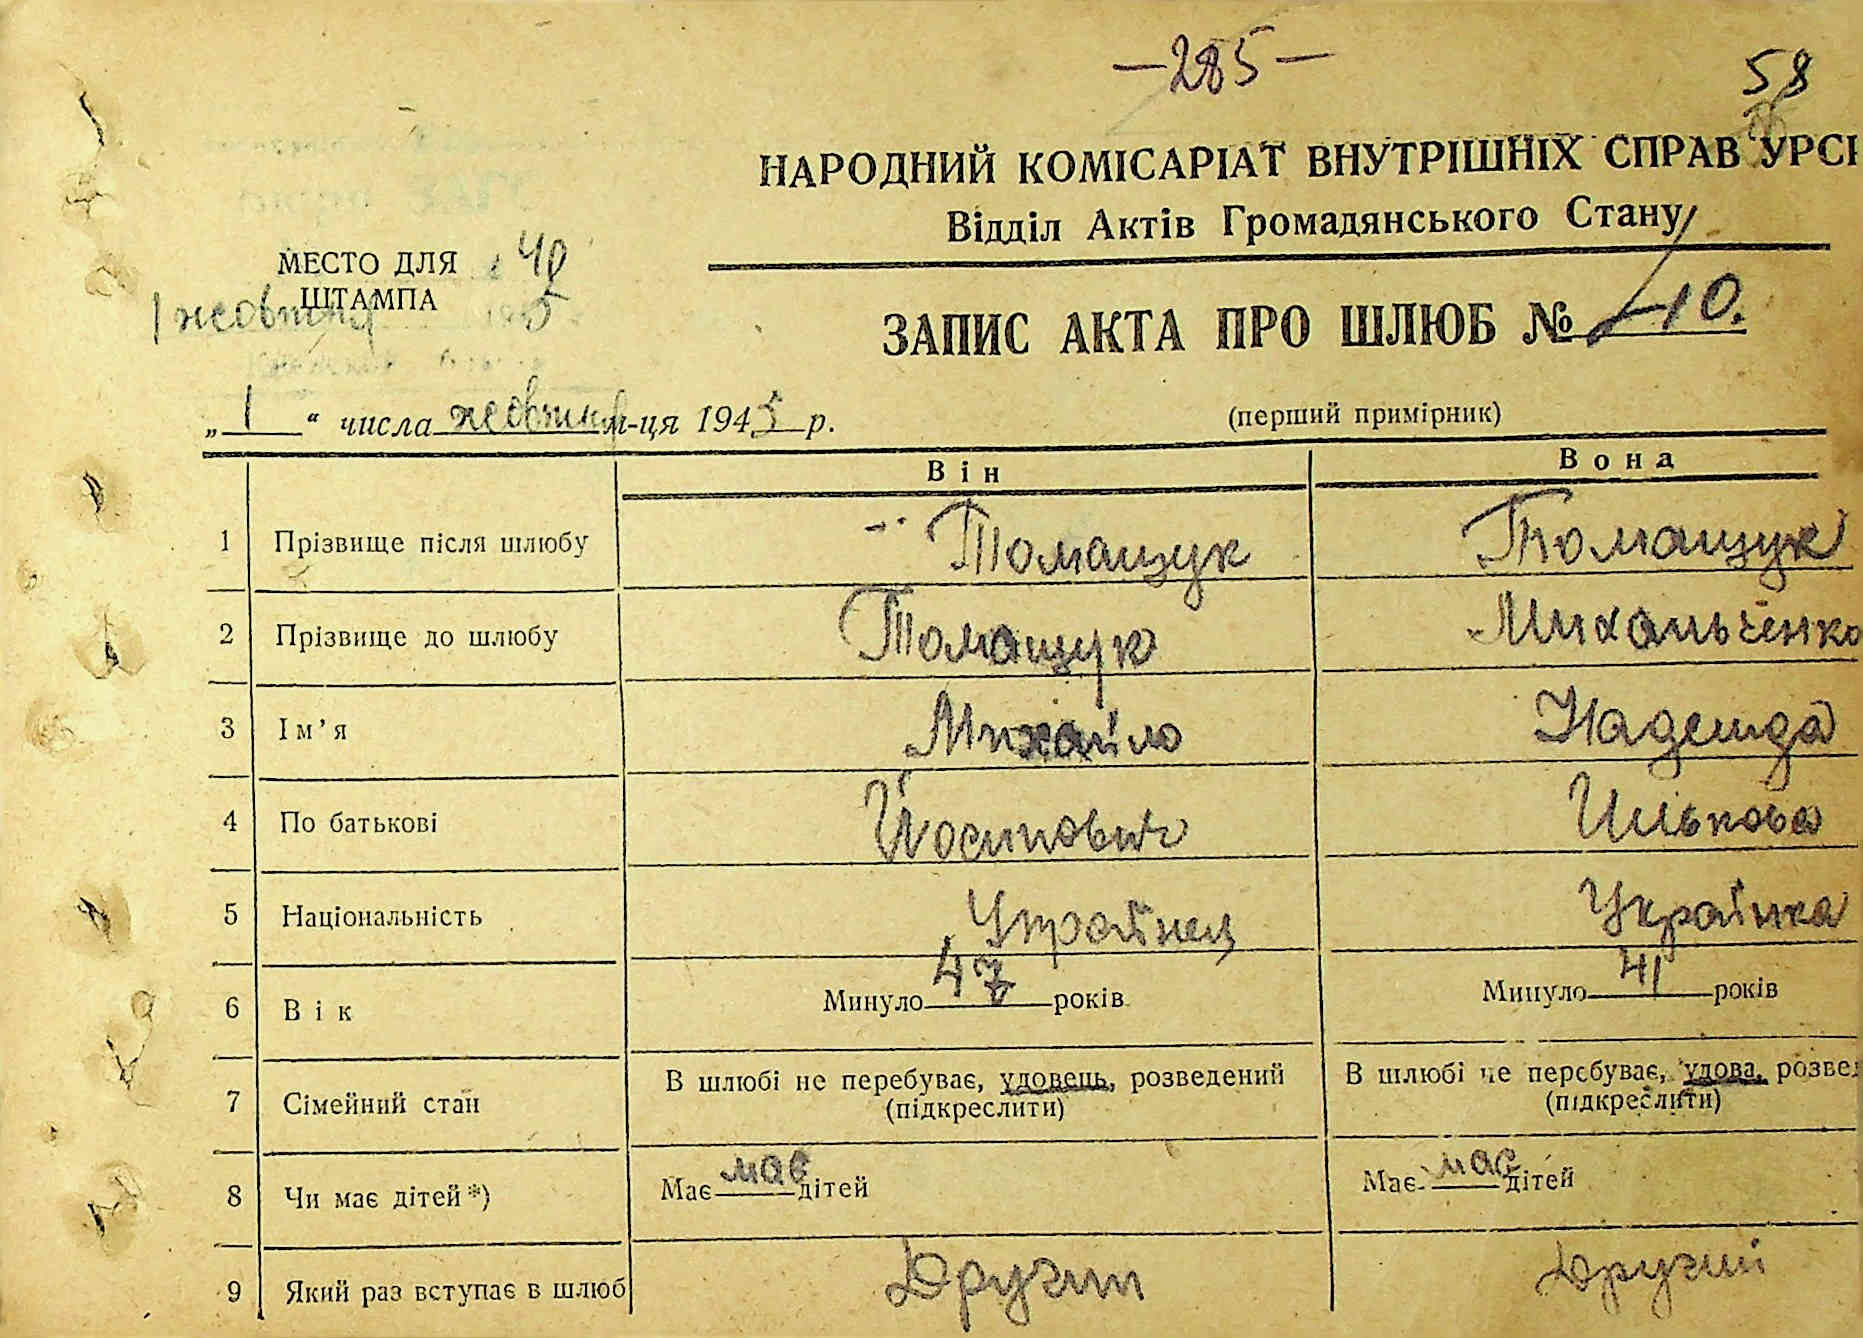 —285— 58
НАРОДНИЙ КОМІСАРІАТ ВНУТРІШНІХ СПРАВ УРСР
Відділ Актів Громадянського Стану
МЕСТО ДЛЯ 40
ШТАМПА
1 жовтня 5
ЗАПИС АКТА ПРО ШЛЮБ № 10.
„ 1 “ числа жовтня м-ця 1945 р.
(перший примірник)
Він Вона
1 Прізвище після шлюбу Томащук Томащук
2 Прізвище до шлюбу Томащук Михальченко
3 Ім’я Михайло Надежда
4 По батькові Йосипович Ількова
5 Національність Украйнец Украінка
6 Вік Минуло 47 років Минуло 41 років
7 Сімейний стан В шлюбі не перебуває, удовець, розведений В шлюбі не перебуває, удова, розвед
(підкреслити) (підкреслити)
8 Чи має дітей *) Має має дітей Має має дітей
9 Який раз вступає в шлюб Другий Другий